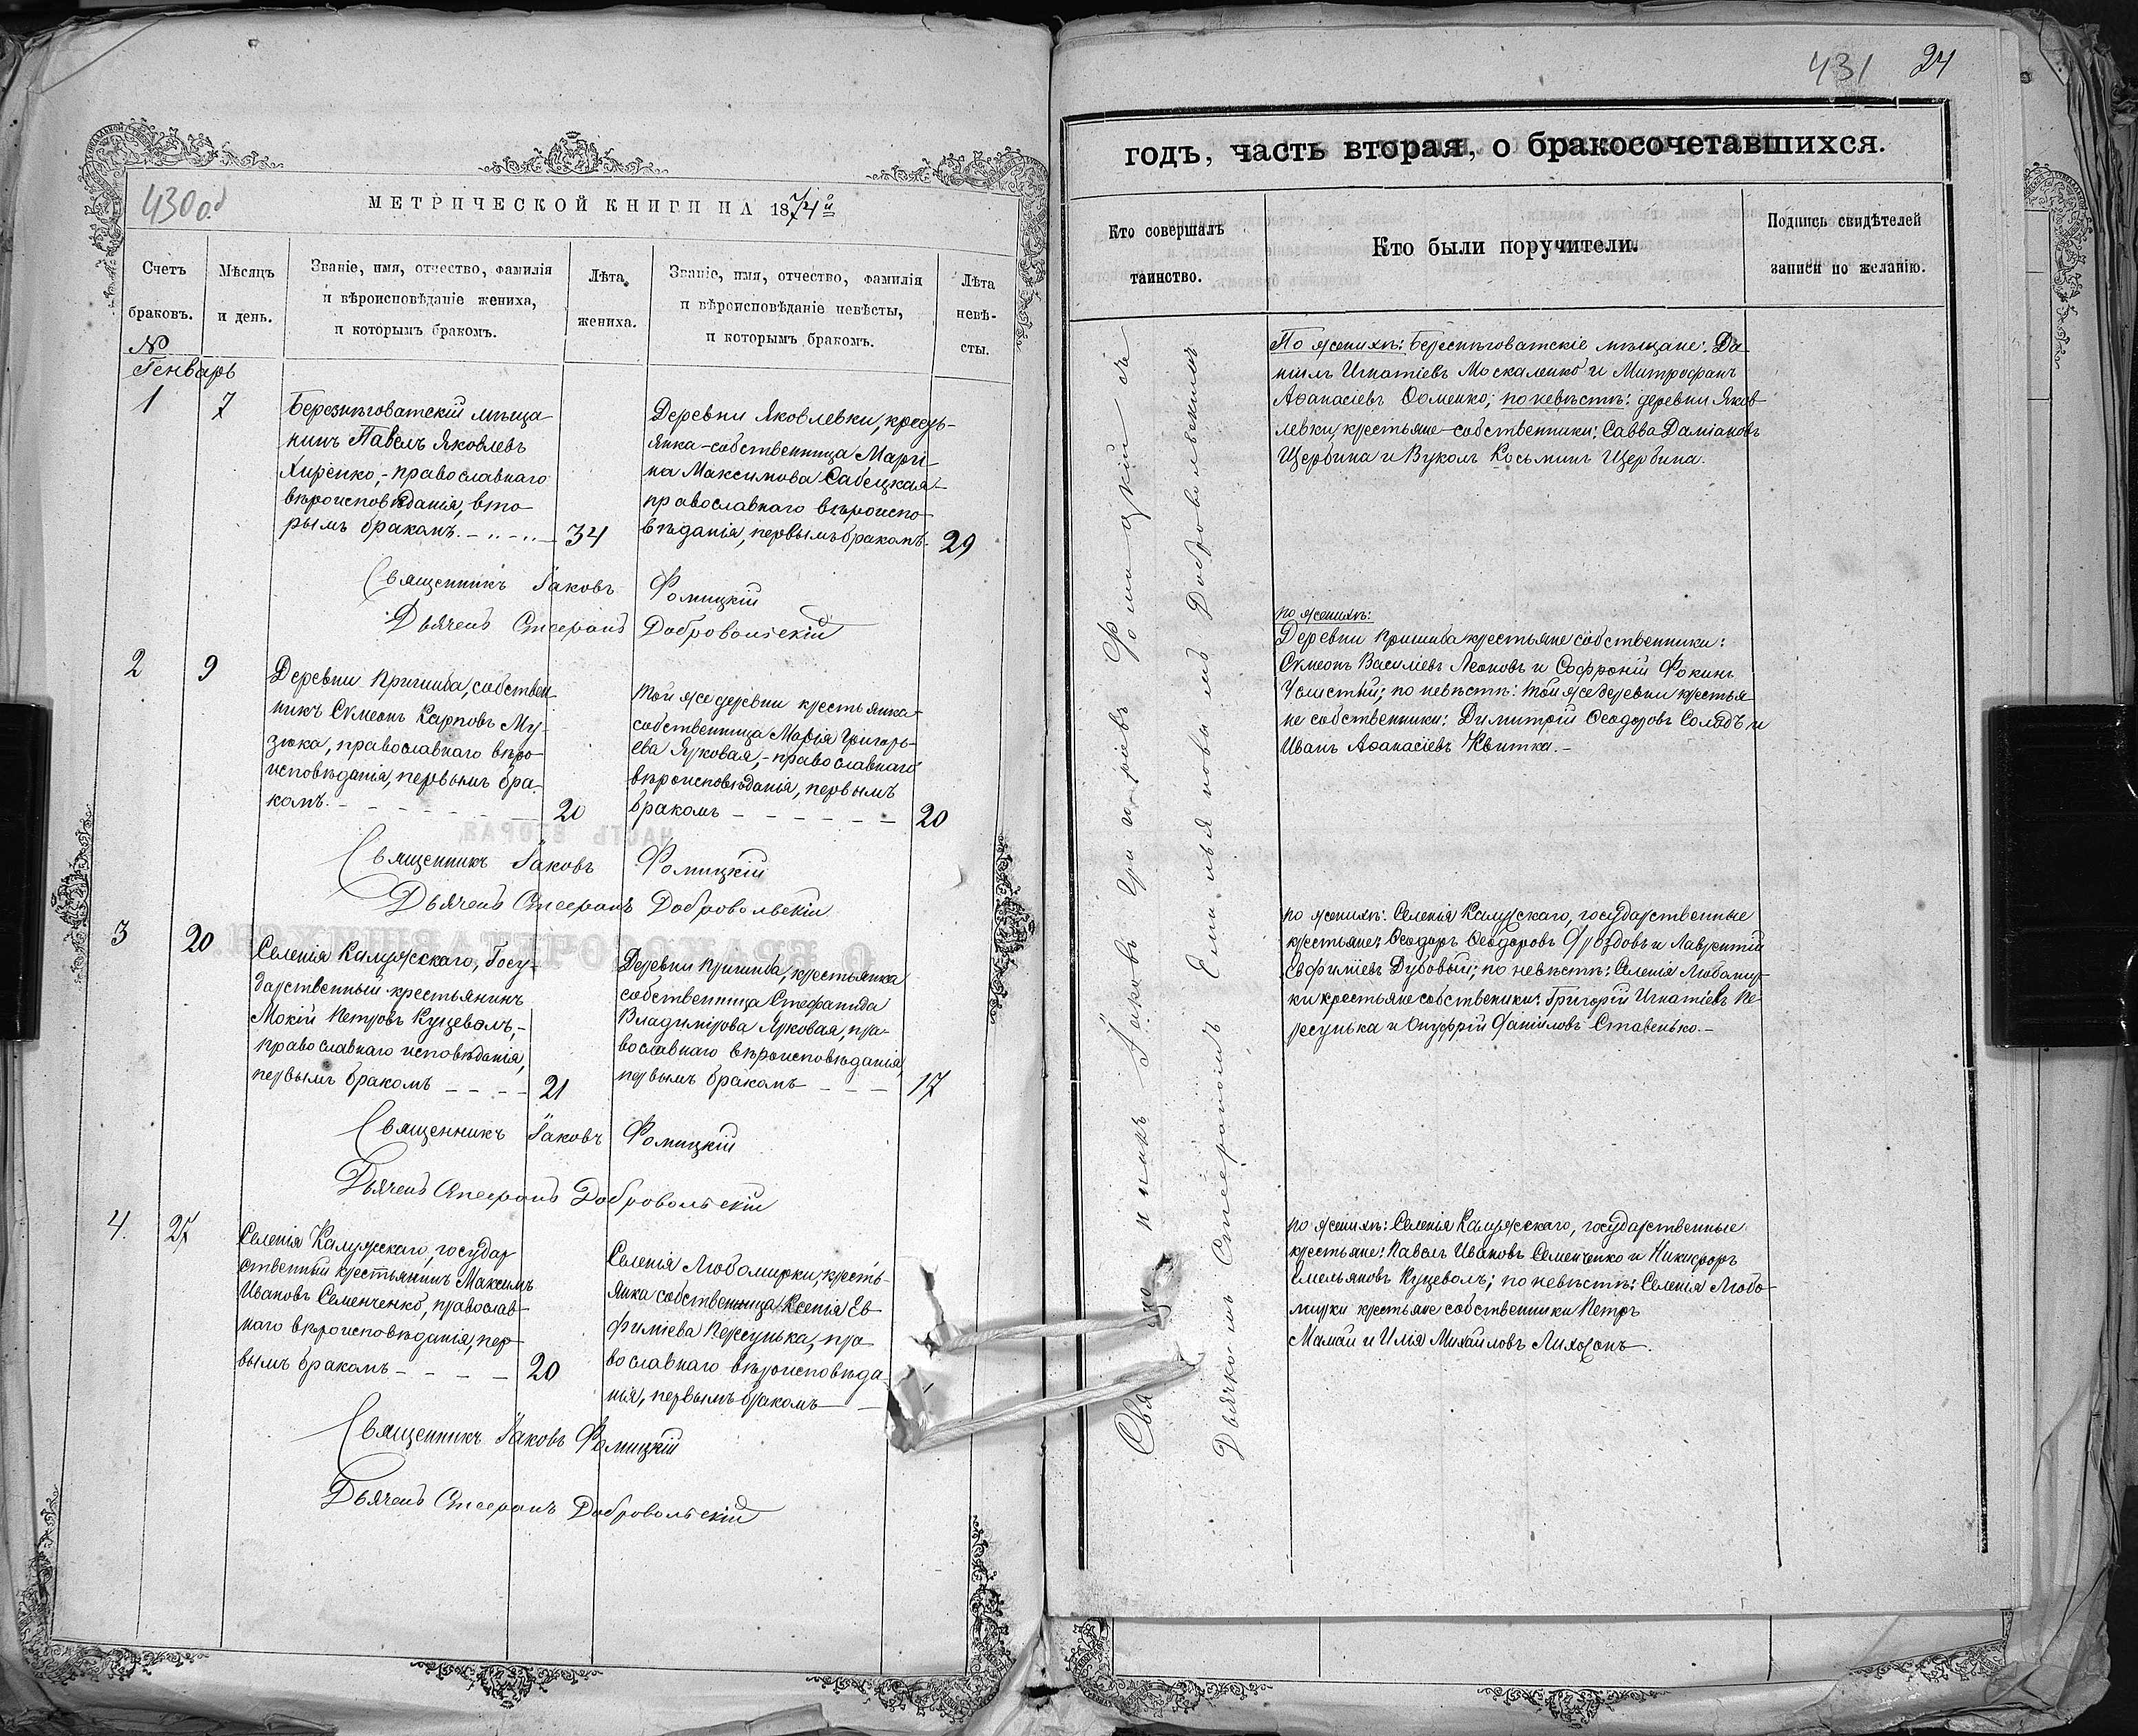 430об
МЕТРИЧЕСКОЙ КНИГИ НА 1874й
Счетъ
браковъ.
№
Мѣсяцъ
и день.
Званіе, имя, отчество, фамилія
и вѣроисповѣданіе жениха,
и которымъ бракомъ.
Лѣта
жениха.
Званіе, имя, отчество, фамилія
и вѣроисповѣданіе невѣсты,
и которымъ бракомъ.
Лѣта
невѣ-
сты.
Генварь
1
7
Березнѣговатскій мѣща-
нинъ Павелъ Яковлевъ
Хиренко,- православнаго
вѣроисповѣданія, вто-
рымъ бракомъ.
34
Деревни Яковлевки, кресть-
янка-собственница Мари-
на Максимова Сабецкая-
православнаго вѣроиспо-
вѣданія, первымъ бракомъ.
29
Священникъ Іаковъ Фомицкій
Дьячекъ Добровольскій
2
9
Деревни Пришиба, собствен-
никъ Сѵмеонъ Карповъ Му-
зюка, православнаго вѣро-
исповѣданія, первымъ бра-
комъ.
20
той же деревни крестьянка-
собственница Марія Григорь-
ева Ярковая,- православнаго
вѣроисповѣданія, первымъ
бракомъ
20
Священникъ Іаковъ Фомицкій
Дьячекъ Добровольскій
3
20
Селенія Калужскаго, Госу-
дарственный крестьянинъ
Мокій Петровъ Куцеволъ,-
православнаго исповѣданія,
первымъ бракомъ
21
Деревни Пришиба, крестьянка
собственница Стефанида
Владимірова Ярковая, пра-
вославнаго вѣроисповѣданія,
первымъ бракомъ
17
Священникъ Іаковъ Фомицкій
Дьячекъ Добровольскій
4.
27
Селенія Калужскаго, государ-
ственный крестьянинъ Максимъ
Ивановъ Семенченко, православ-
наго вѣроисповѣданія, пер-
вымъ бракомъ
20
Селенія Любомирки, кресть-
янка собственница Ксенія Ев-
фиміева Пересунька, пра-
вославнаго вѣроисповѣда-
нія, первымъ бракомъ
Священникъ Іаковъ Фомицкій
Дьячекъ Добровольскій
431 24
годъ, часть вторая, о бракосочетавшихся.
Кто совершалъ
таинство.
Кто были поручители.
Подпись свидѣтелей
записи по желанію.
Іаковъ Григоріевъ Фомицкій съ
Дьячкомъ Добровольскимъ
По женихѣ: Березнѣговатскіе мѣщане: Да-
ніилъ Игнатіевъ Москаленко и Митрофанъ
Аѳанасіевъ Ѳоменко; по невѣстѣ: деревни Яков-
левки, крестьяне-собственники: Савва Даміановъ
Щербина и Вуколъ Косьминъ Щербина.
по женихѣ:
Деревни Пришиба крестьяне собственники:
Сѵмеонъ Василіевъ Леоновъ и Софроній Фокинъ
по невѣстѣ: той же деревни крестья-
не собственники: Димитрій Ѳеодоровъ и
Иванъ Аѳанасіевъ Квитка.-
по женихѣ: Селенія Калужскаго, государственные
крестьяне: Ѳеодоръ Ѳеодоровъ Дроздовъ и Лаврентій
Евфиміевъ Дубовый; по невѣстѣ: Селенія Любомир-
ки крестьяне собственики: Григорій Игнатіевъ Пе-
ресунька и Онуфрій Даніиловъ Ставенько.-
по женихѣ: Селенія Калужскаго, государственные
крестьяне: Павелъ Ивановъ Семенченко и Никифоръ
Емельяновъ Куцеволъ; по невѣстѣ: Селенія Любо-
мирки крестьяне собственники Петръ
Мамай и Илія Михайловъ